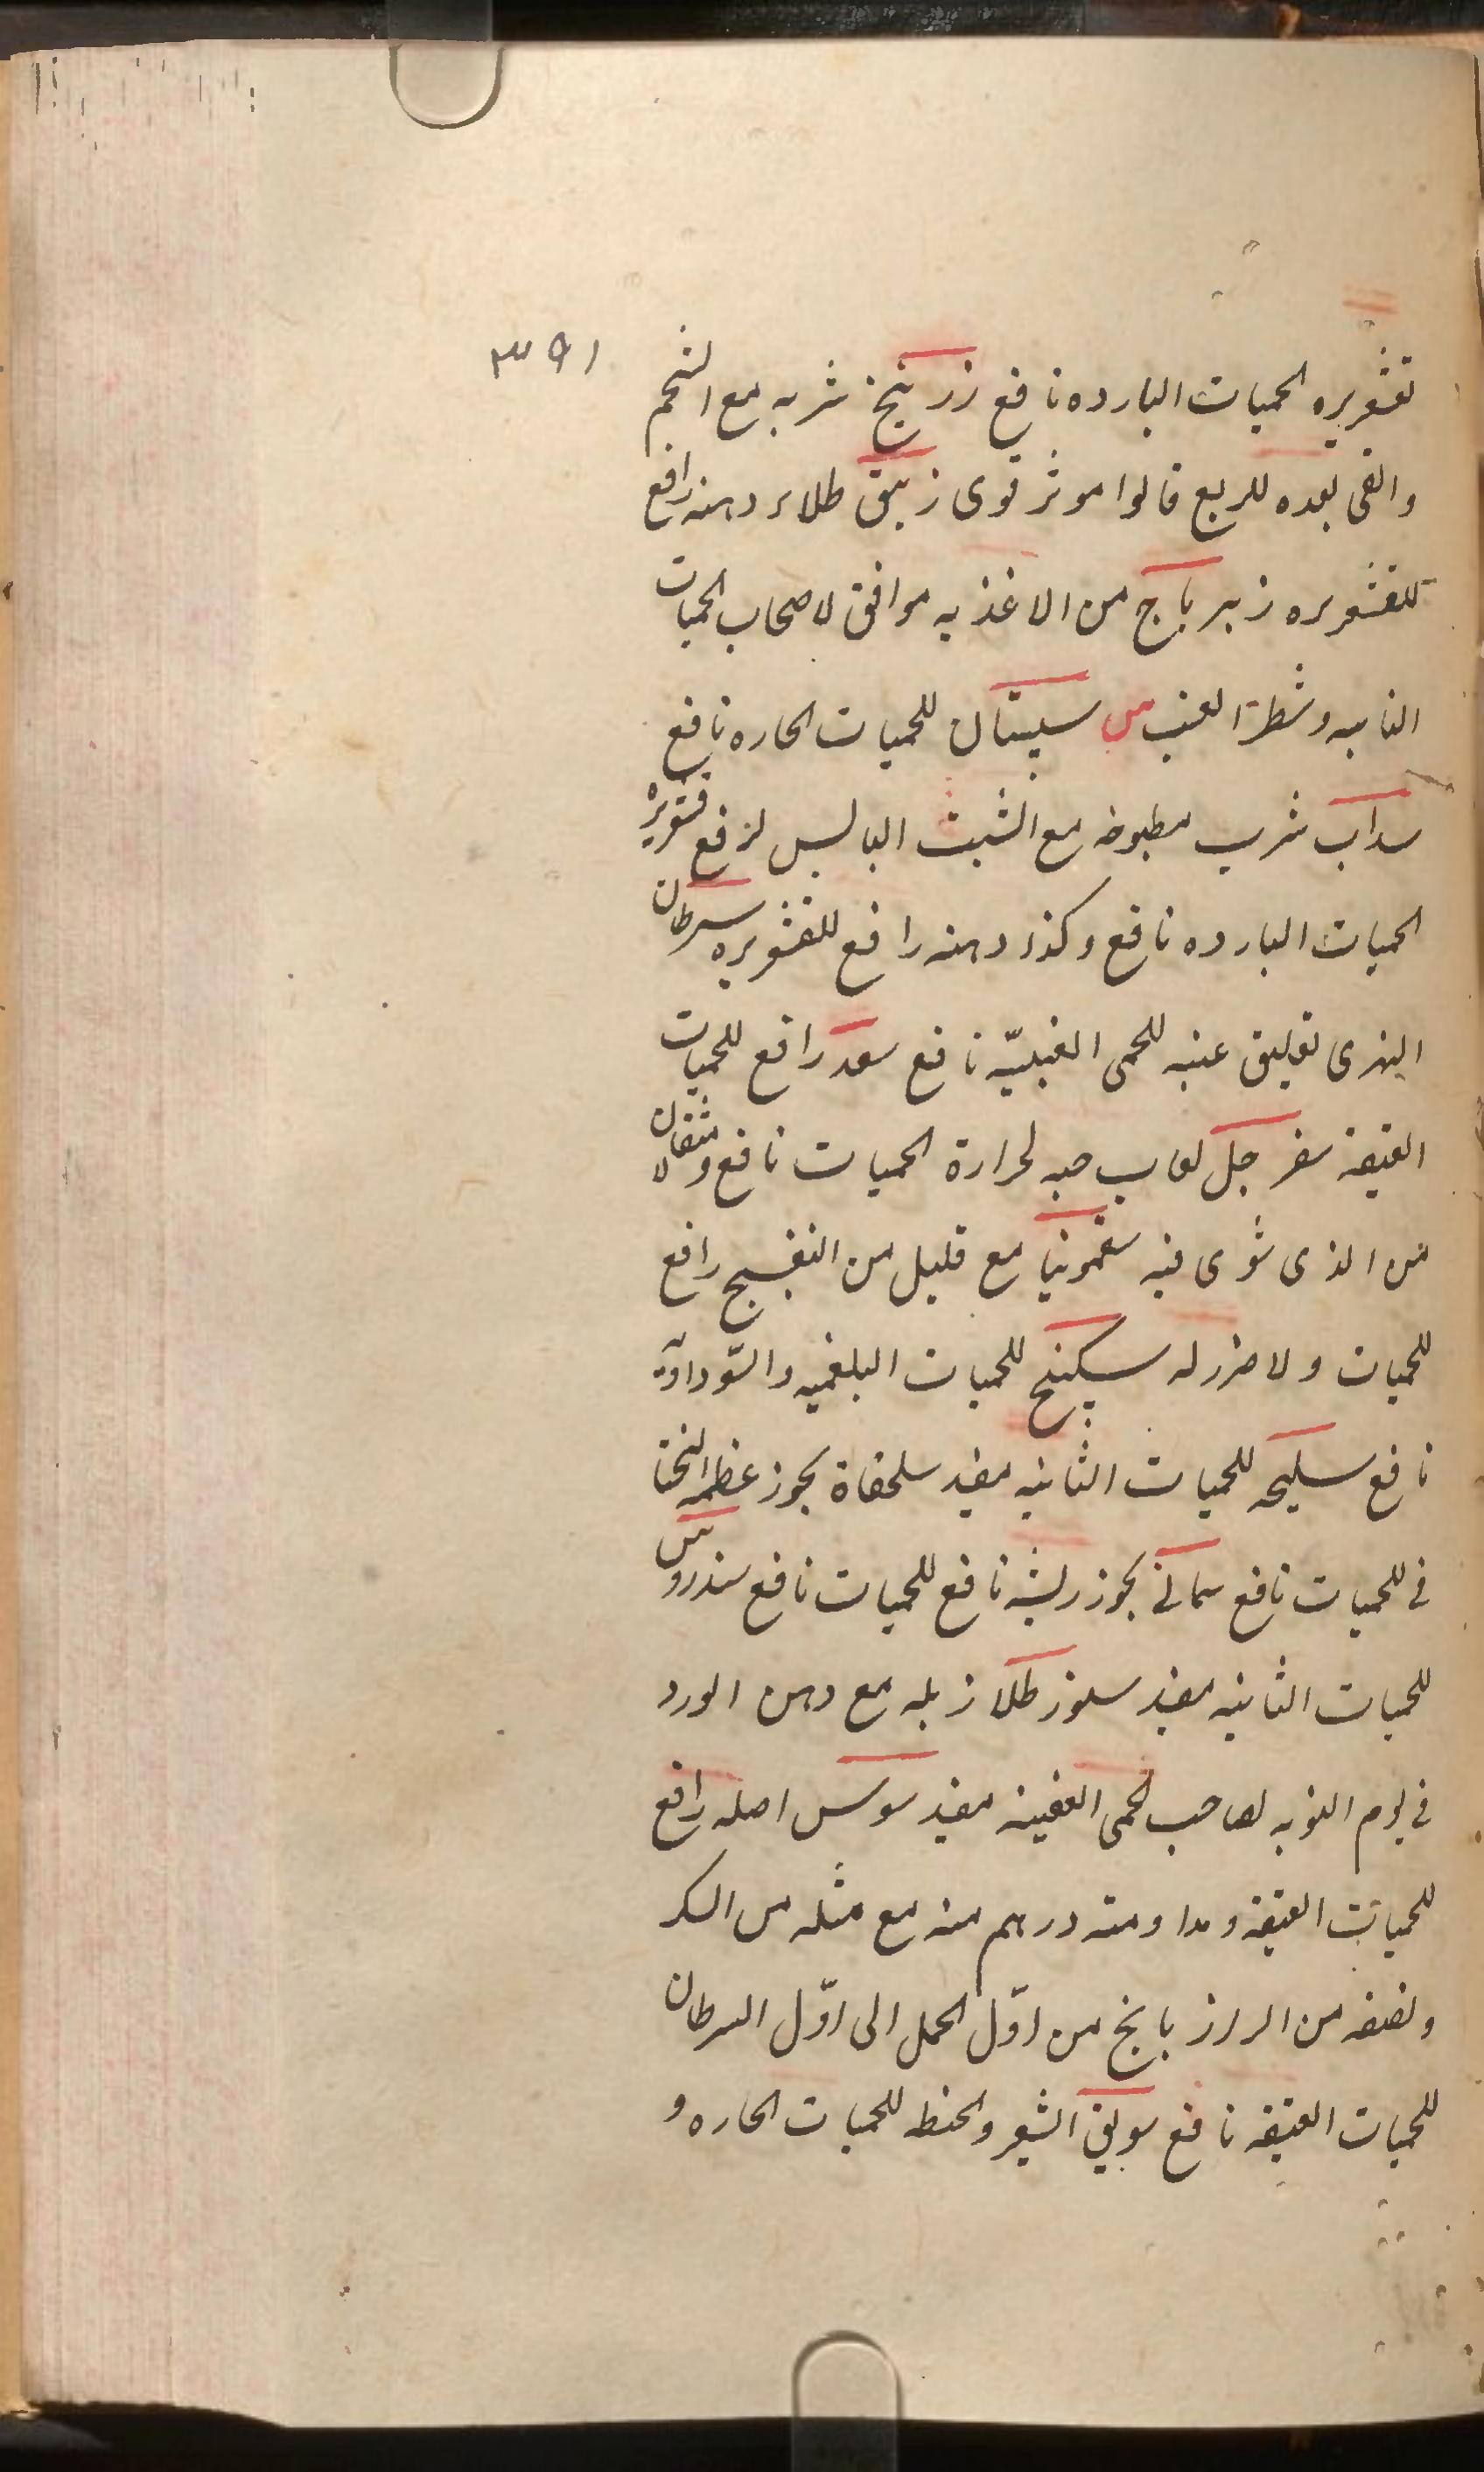 ٣٩١
قشعريره الحميات البارده نافع زرنيخ شربه مع الشحم
والقى بعده للربع قالوا موثر قوى زيبق طلاء دهنه رافع
للقشعريره زيرباج من الاغذيه موافق لاصحاب الحميات
النايبه وشطر الغب س سپستان للحميات الحاره نافع
سداب شرب مطبوخه مع الشبث اليابس لرفع قشعريره
الحميات البارده نافع وكذا دهنه رافع للقشعريره سرطان
النهرى تعليق عينه للحمى الغبيّه نافع سعد رافع للحميات
العتيقه سفرجل لعاب حبه لحرارة الحميات نافع ومثقالان
من الذى شوى فيه سقمونيا مع قليل من البنفسج رافع
للحميات ولا ضرر له سكبينج للحميات البلغميه والسّوداويّه
نافع سليخه للحميات النايبه مفيد سلحفاة بخور عظمه
فى للحميات نافع سمانى بخور ريشه نافع للحميات نافع سندروس
للحميات النايبه مفيد سنور طلا زبله مع دهن الورد
فى يوم النوبه لصاحب الحمى العفينه مفيد سوس اصله رافع
للحميات العتيقه ومداومته درهم منه مع مثله من السكر
ونصفه من الرازيانج من اوّل الحمل الى اوّل السرطان
للحميات العتيقه نافع سويق الشعير والحنطه للحميات الحاره و